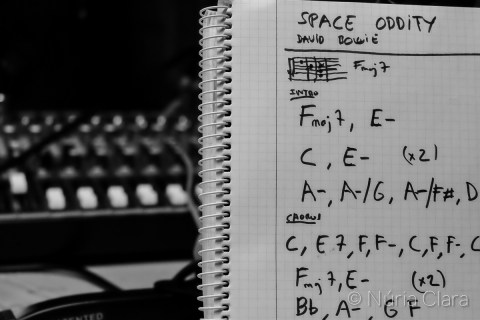 SPACE ODDITY
DAVID BOWIE
Fmaj7
INTRO
Fmaj7, E-
C, E- (x2)
A-, A-/G, A-/F#, D
CHORUS
C, E7, F, F-, C, F, F-, C
Fmaj7, E- (x2)
Bb, A-, G F
© Núria Clara